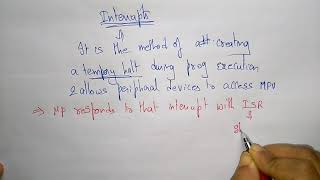 Interrupts
It is the method of creating
a temporary halt during prog execution
& allows peripheral devices to access MPU
⇒ MP responds to that interrupt with ISR